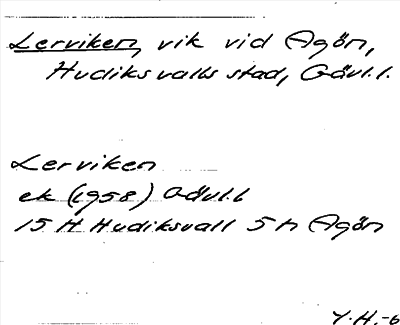 Lerviken, vik vid Agön,
Hudiksvalls stad, Gävl.l.
Lerviken
ek (1958) Gävl.l
15 H Hudiksvall 5 h Agön
Y.H.-6